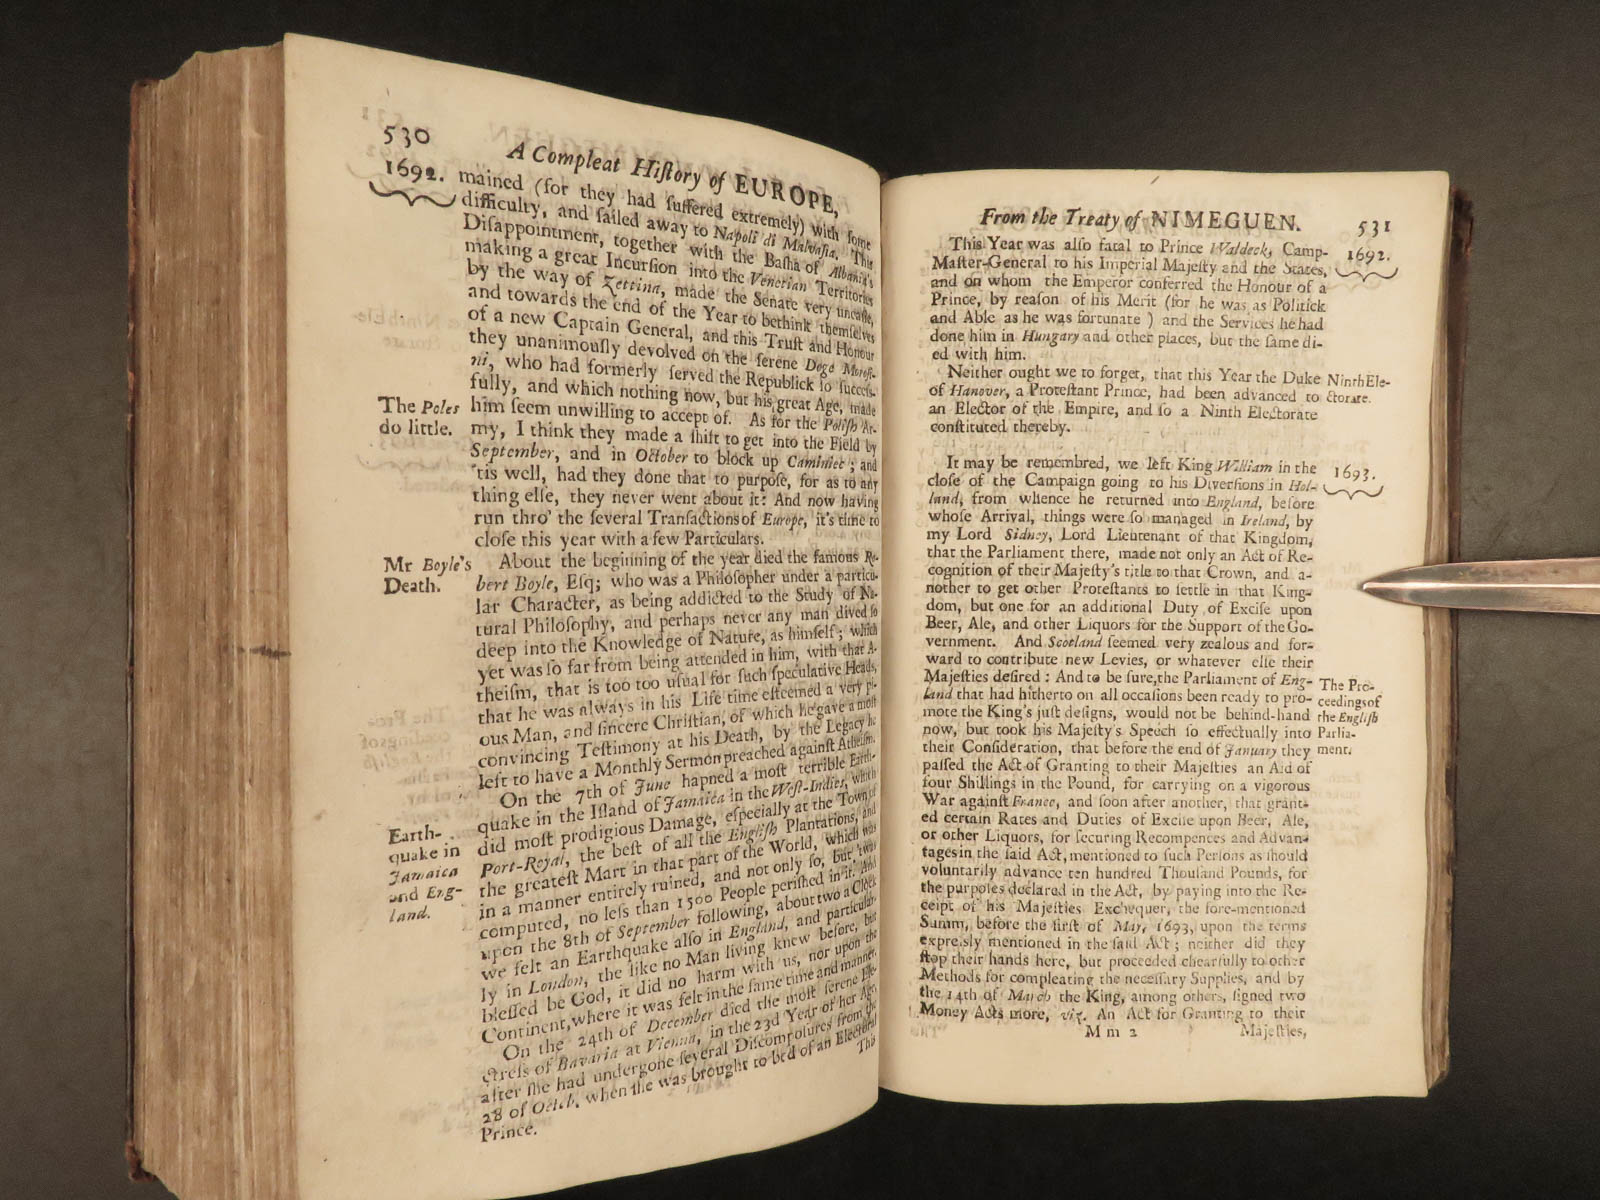 530
A Compleat Hiſtory of EUROPE,
1692.
mained (for they had ſuffered extremely) with ſome
difficulty, and ſailed away to Napoli di Malvaſia. This
Diſappointment, together with the Baſha of Albania's
making a great Incurſion into the Venetian Territories
by the way of Zettina, made the Senate very uneaſie,
and towards the end of the Year to bethink themſelves
of a new Captain General, and this Truſt and Honour
they unanimouſly devolved on the ſerene Doge Moroſi-
ni, who had formerly ſerved the Republick ſo ſucceſs-
fully, and which nothing now, but his great Age, made
The Poles
do little.
him ſeem unwilling to accept of. As for the Poliſh Ar-
my, I think they made a ſhift to get into the Field by
September, and in October to block up Caminiec; and
'tis well, had they done that to purpoſe, for as to any
thing elſe, they never went about it: And now having
run thro' the ſeveral Tranſactions of Europe, it's time to
cloſe this year with a few Particulars.
Mr Boyle's
Death.
About the beginning of the year died the famous Ro-
bert Boyle, Eſq; who was a Philoſopher under a particu-
lar Character, as being addicted to the Study of Na-
tural Philoſophy, and perhaps never any man dived ſo
deep into the Knowledge of Nature, as himſelf; which
yet was ſo far from being attended in him, with that A-
theiſm, that is too too uſual for ſuch ſpeculative Heads,
that he was always in his Life time eſteemed a very pi-
ous Man, and ſincere Chriſtian, of which he gave a moſt
convincing Teſtimony at his Death, by the Legacy he
left to have a Monthly Sermon preached againſt Atheiſm.
Earth-
quake in
Jamaica
and Eng-
land.
On the 7th of June hapned a moſt terrible Earth-
quake in the Iſland of Jamaica in the Weſt-Indies, which
did moſt prodigious Damage, eſpecially at the Town of
Port-Royal, the beſt of all the Engliſh Plantations, and
the greateſt Mart in that part of the World, which was
in a manner entirely ruined, and not only ſo, but 'twas
computed, no leſs than 1500 People periſhed in it. And
upon the 8th of September following, about two a Clock
we felt an Earthquake alſo in England, and particular-
ly in London, the like no Man living knew before, but
bleſſed be God, it did no harm with us, nor upon the
Continent, where it was felt in the ſame time and manner.
On the 24th of December died the moſt ſerene Ele-
ctreſs of Bavaria at Vienna, in the 23d Year of her Age,
after ſhe had undergone ſeveral Diſcompoſures from the
28 of Octob. when ſhe was brought to bed of an Electoral
Prince.
This
From the Treaty of NIMEGUEN.
531
1692.
This Year was alſo fatal to Prince Waldeck, Camp-
Maſter-General to his Imperial Majeſty and the States,
and on whom the Emperor conferred the Honour of a
Prince, by reaſon of his Merit (for he was as Politick
and Able as he was fortunate) and the Services he had
done him in Hungary and other places, but the ſame di-
ed with him.
Neither ought we to forget, that this Year the Duke
of Hanover, a Proteſtant Prince, had been advanced to
an Elector of the Empire, and ſo a Ninth Electorate
conſtituted thereby.
Ninth Ele-
ctorate.
1693.
It may be remembred, we left King William in the
cloſe of the Campaign going to his Diverſions in Hol-
land, from whence he returned into England, before
whoſe Arrival, things were ſo managed in Ireland, by
my Lord Sidney, Lord Lieutenant of that Kingdom,
that the Parliament there, made not only an Act of Re-
cognition of their Majeſty's title to that Crown, and a-
nother to get other Proteſtants to ſettle in that King-
dom, but one for an additional Duty of Exciſe upon
Beer, Ale, and other Liquors for the Support of the Go-
vernment. And Scotland ſeemed very zealous and for-
ward to contribute new Levies, or whatever elſe their
Majeſties deſired: And to be ſure, the Parliament of Eng-
land that had hitherto on all occaſions been ready to pro-
mote the King's juſt deſigns, would not be behind-hand
now, but took his Majeſty's Speech ſo effectually into
their Conſideration, that before the end of January they
paſſed the Act of Granting to their Majeſties an Aid of
four Shillings in the Pound, for carrying on a vigorous
War againſt France, and ſoon after another, that grant-
ed certain Rates and Duties of Exciſe upon Beer, Ale,
or other Liquors, for ſecuring Recompences and Advan-
tages in the ſaid Act, mentioned to ſuch Perſons as ſhould
voluntarily advance ten hundred Thouſand Pounds, for
the purpoſes declared in the Act, by paying into the Re-
ceipt of his Majeſties Exchequer, the fore-mentioned
Summ, before the firſt of May, 1693, upon the terms
expreſsly mentioned in the ſaid Act; neither did they
ſtop their hands here, but proceeded chearfully to other
Methods for compleating the neceſſary Supplies, and by
the 14th of March the King, among others, ſigned two
Money Acts more, viz. An Act for Granting to their
The Pro-
ceedings of
the Engliſh
Parlia-
ment.
M m 2
Majeſties,